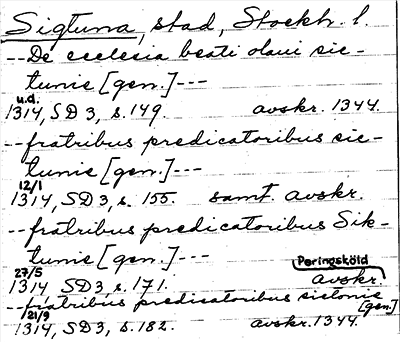 Sigtuna, stad, Stockh. l.
-- De ecclesia beati olaui sic-
tunie [gen.] ---
u.d.
1314, SD 3, s. 149. avskr. 1344.
-- fratribus predicatoribus sic-
tunie [gen.] ---
12/1
1314, SD 3, s. 155. samt. avskr.
-- fratribus predicatoribus Sik-
tunie [gen.] ---
27/5 Peringsköld
1314 SD 3, s. 171. avskr.
-- fratribus predicatoribus sictonie [gen]
21/9
1314, SD 3, s. 182. avskr. 1344.